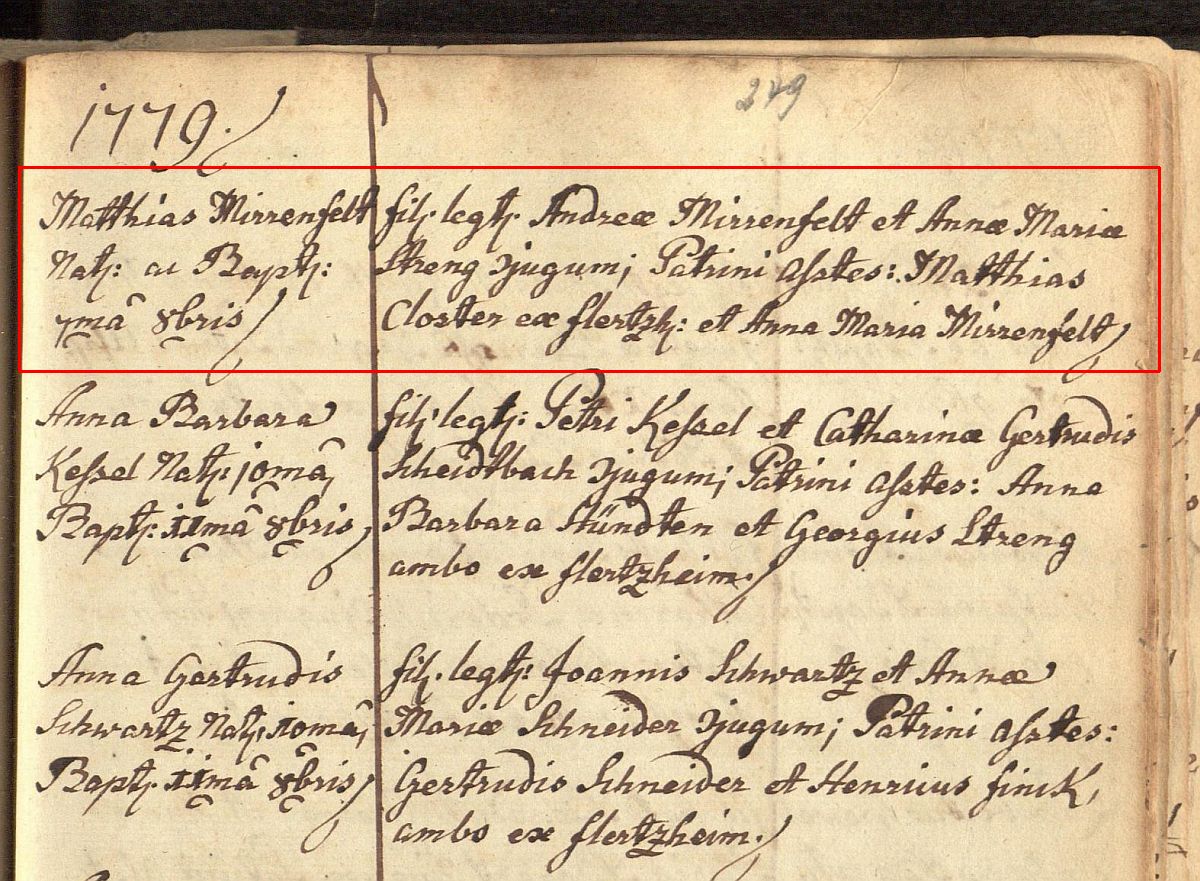 1779.
249
Matthias Mirrenfelt
Nat: ac Bapt:
7mâ 8bris
fil. legt. Andreæ Mirrenfelt et Annæ Mariæ
Streng Jjugum; Patrini asstes: Matthias
Closter ex flertzh: et Anna Maria Mirrenfelt
Anna Barbara
Kessel Nat: 10mâ,
Bapt. 11mâ 8bris
fil. legt: Petri Kessel et Catharinæ Gertrudis
Scheidtbach Jjugum; Patrini asstes: Anna
Barbara Stündten et Georgius Streng
ambo ex flertzheim.
Anna Gertrudis
Schwartz Nat: 10mâ,
Bapt. 11mâ 8bris
fil. legt: Joannis Schwartz et Annæ
Mariæ Schneider Jjugum; Patrini asstes:
Gertrudis Schneider et Henricus finck,
ambo ex flertzheim.